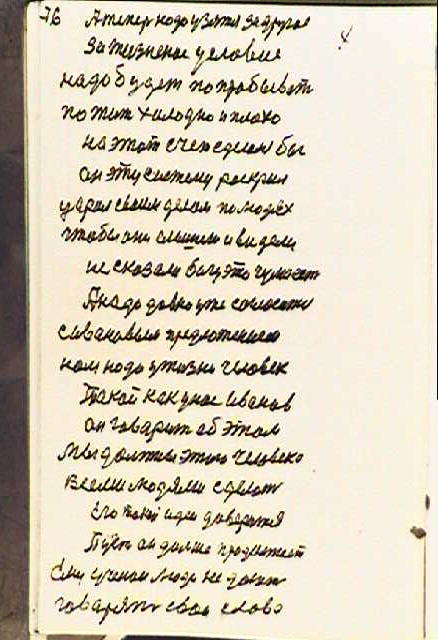 76 А теперь надо узятся за другое
За жизненое условие
надо будет попробывать
пожить холодно и плохо
на этот счет сделал бы
он эту систему раскрыл
ударил своим делом по людях
чтобы они слышили и видели
не сказали богу это чужое
А надо давно уже согласится
с ивановым предложением
нам надо у жизни человек
Такой как у нас Иванов
он говорит об этом
мы должны этого человека
всеми людями сделать
Его идеи доверятся
Пусть он дальше продолжает
Ему ученои люди не дают
говорять свое слово